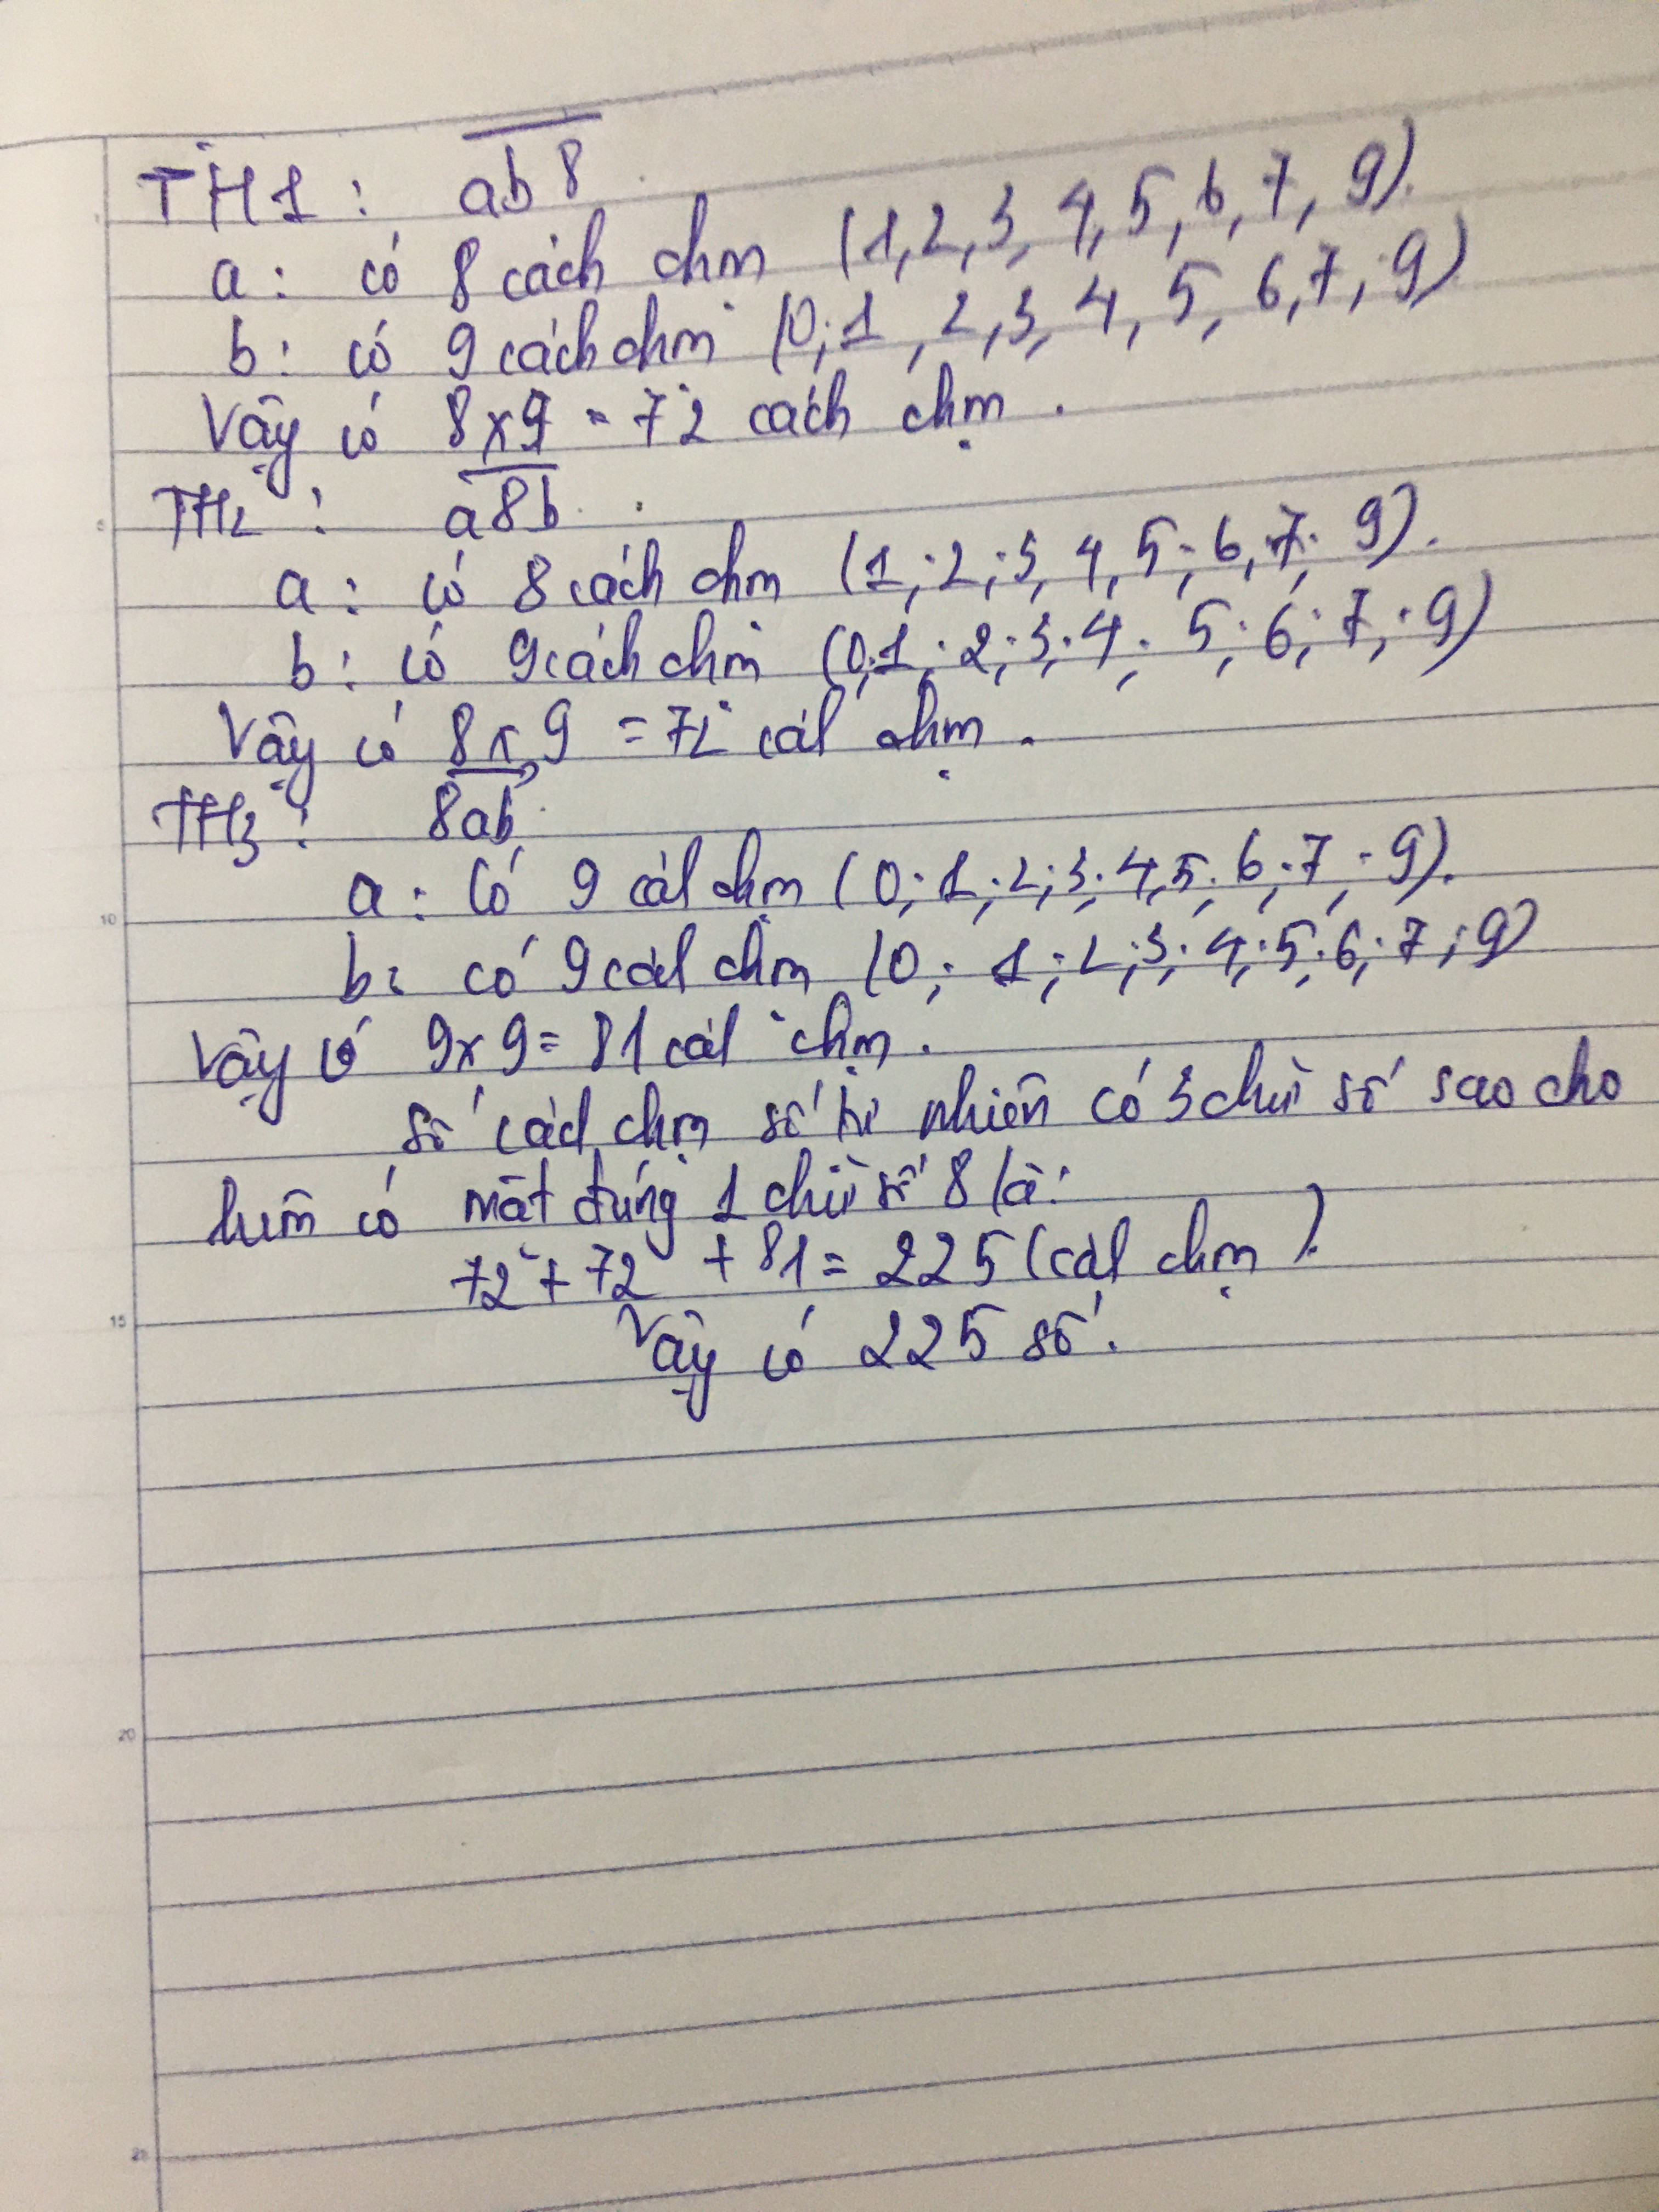 TH1: ab8
a: có 8 cách chọn (1,2,3,4,5,6,7,9).
b: có 9 cách chọn (0;1,2,3,4,5,6,7,9)
Vậy có 8x9 = 72 cách chọn.
TH2: a8b
a: có 8 cách chọn (1;2;3,4,5;6,7;9).
b: có 9 cách chọn (0;1;2;3;4;5;6;7;9)
Vậy có 8x9 = 72 cách chọn.
TH3: 8ab
a: Có 9 cách chọn (0;1;2;3;4,5;6;7;9).
b: có 9 cách chọn (0;1;2;3;4;5;6;7;9)
Vậy có 9x9 = 81 cách chọn.
số cách chọn số tự nhiên có 3 chữ số sao cho
luôn có mặt đúng 1 chữ số 8 là:
72 + 72 + 81 = 225 (cách chọn).
Vậy có 225 số.
5
10
15
20
25